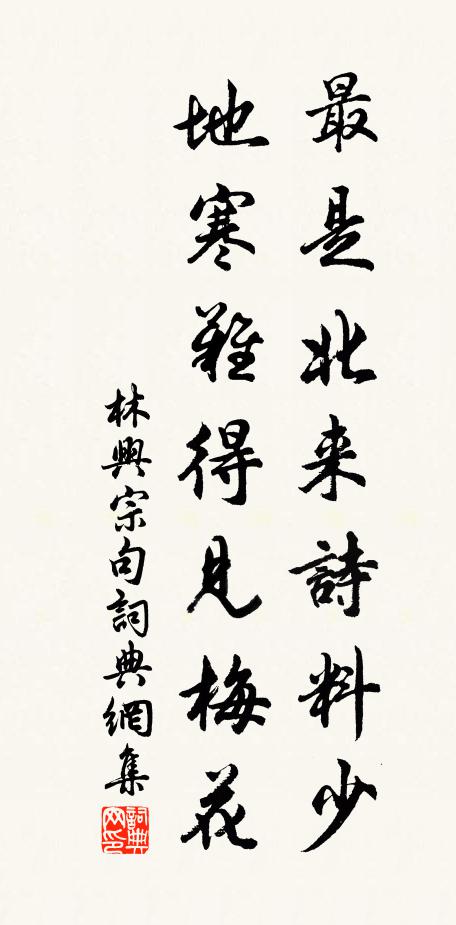 最是北来詩料少
地寒難得見梅花
林興宗句詞典網集
詞典网印